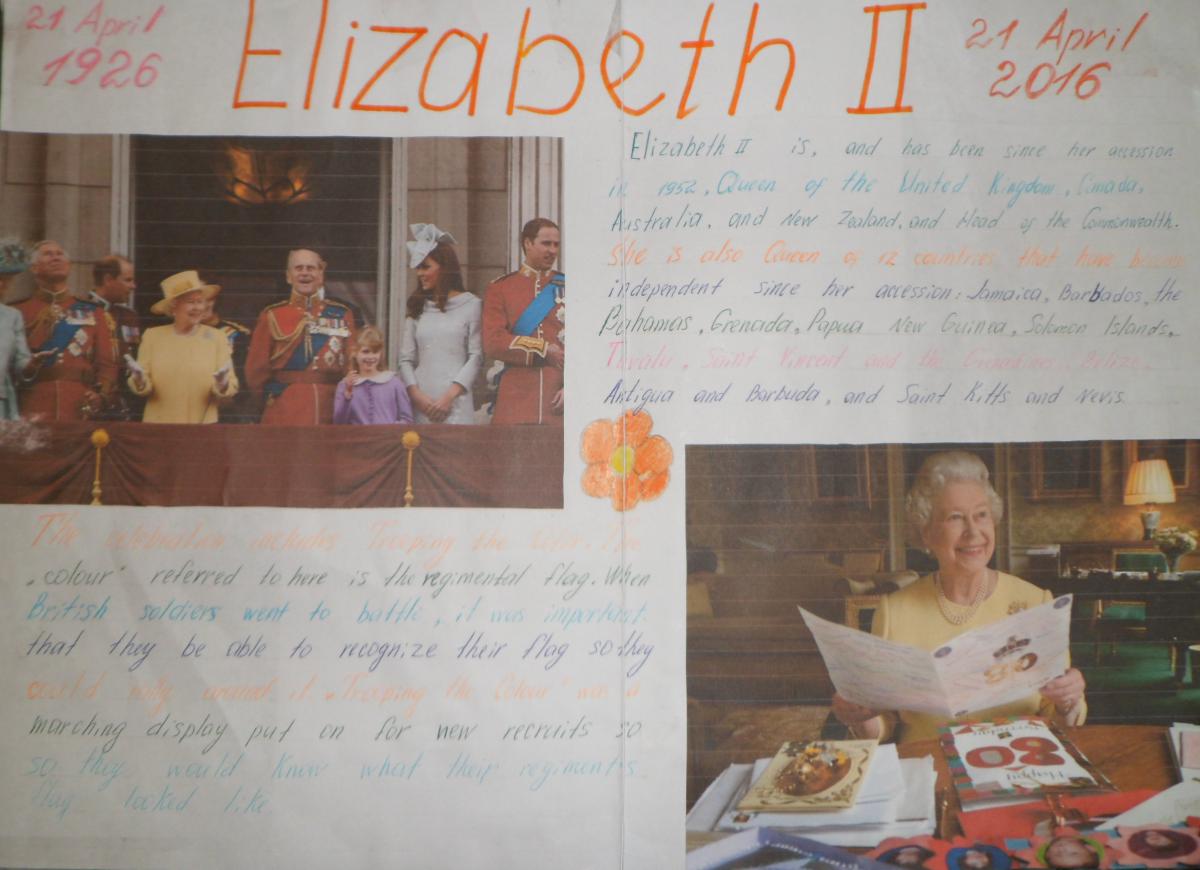 21 April
1926
Elizabeth II
21 April
2016
Elizabeth II is, and has been since her accession
in 1952, Queen of the United Kingdom, Canada,
Australia, and New Zealand, and Head of the Commonwealth.
She is also Queen of 12 countries that have become
independent since her accession: Jamaica, Barbados, the
Bahamas, Grenada, Papua New Guinea, Solomon Islands,
Tuvalu, Saint Vincent and the Grenadines, Belize,
Antigua and Barbuda, and Saint Kitts and Nevis.
The celebration includes Trooping the Color. The
„colour" referred to here is the regimental flag. When
British soldiers went to battle, it was important
that they be able to recognize their flag so they
could rally around it. „Trooping the Colour" was a
marching display put on for new recruits so
so they would know what their regiment's
flag looked like.
Happy
80
Birthday